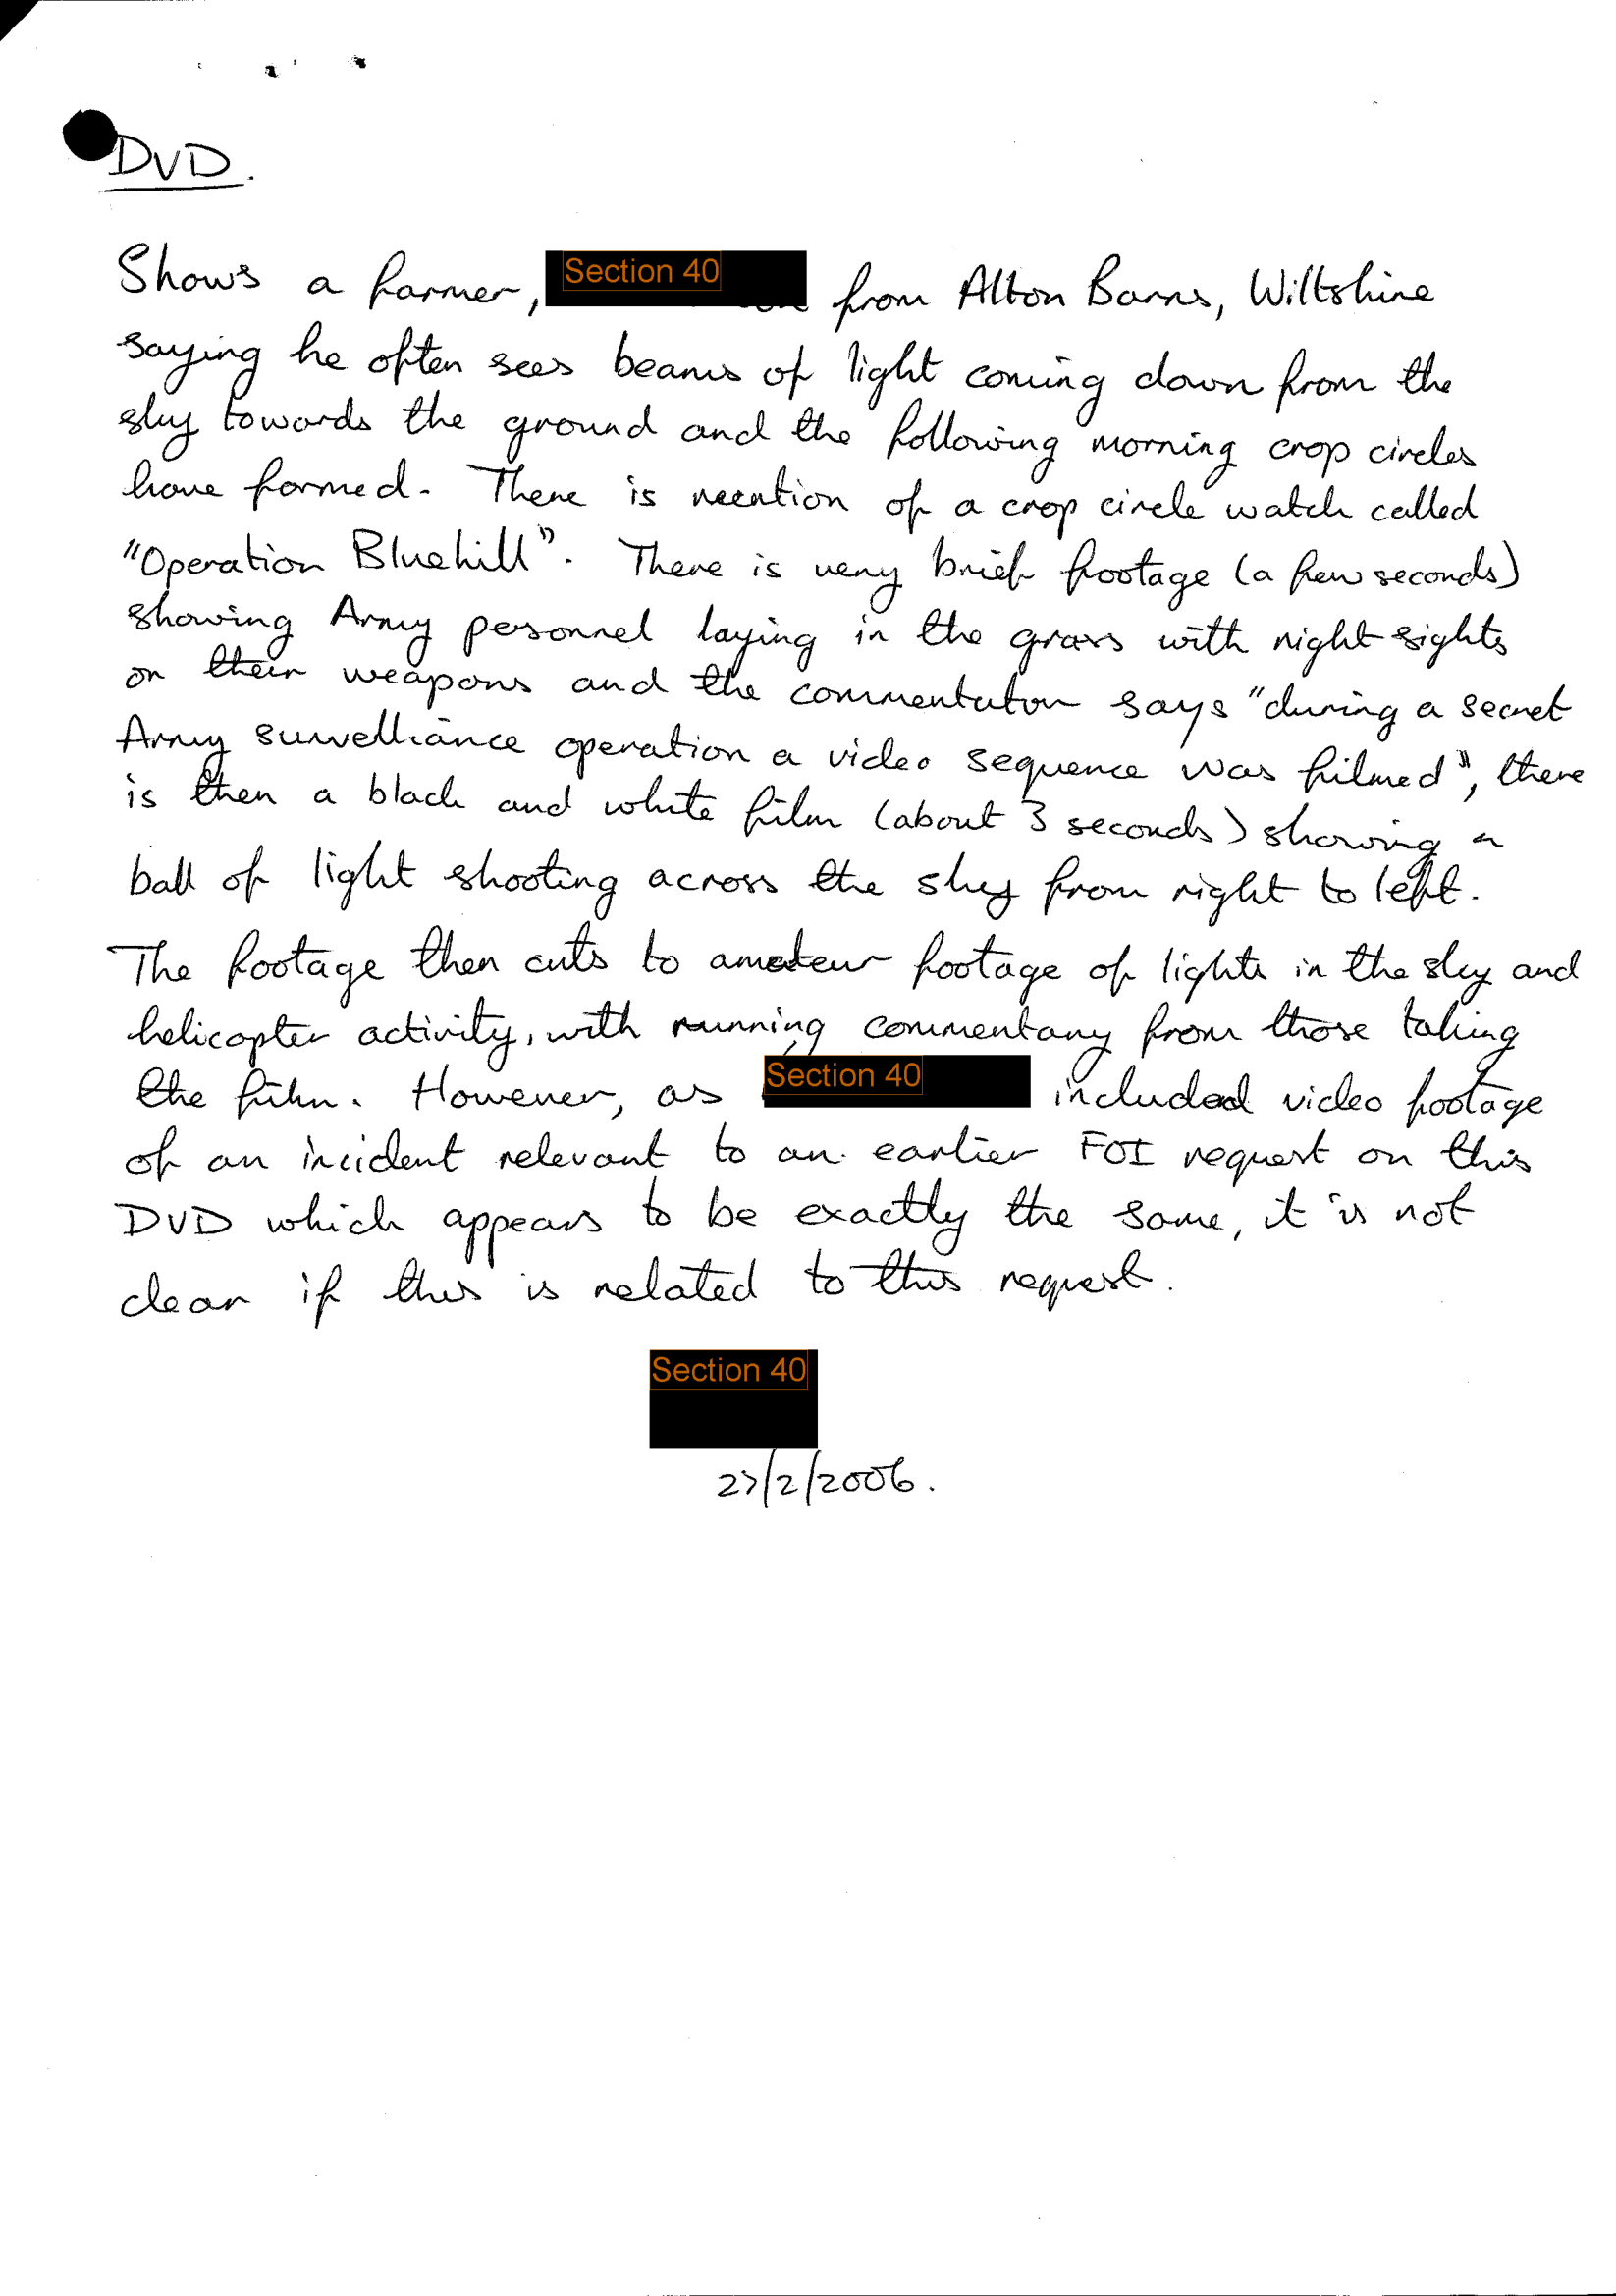 DVD.
Shows a farmer, Section 40 from Alton Barns, Wiltshire
saying he often sees beams of light coming down from the
sky towards the ground and the following morning crop circles
have formed. There is mention of a crop circle watch called
"Operation Bluehill". There is very brief footage (a few seconds)
showing Army personnel laying in the grass with night sights
on their weapons and the commentator says "during a secret
Army survelliance operation a video sequence was filmed", there
is then a black and white film (about 3 seconds) showing a
ball of light shooting across the sky from right to left.
The footage then cuts to amateur footage of lights in the sky and
helicopter activity, with running commentary from those taking
the film. However, as Section 40 included video footage
of an incident relevant to an earlier FOI request on this
DVD which appears to be exactly the same, it is not
clear if this is related to this request.
Section 40
27/2/2006.